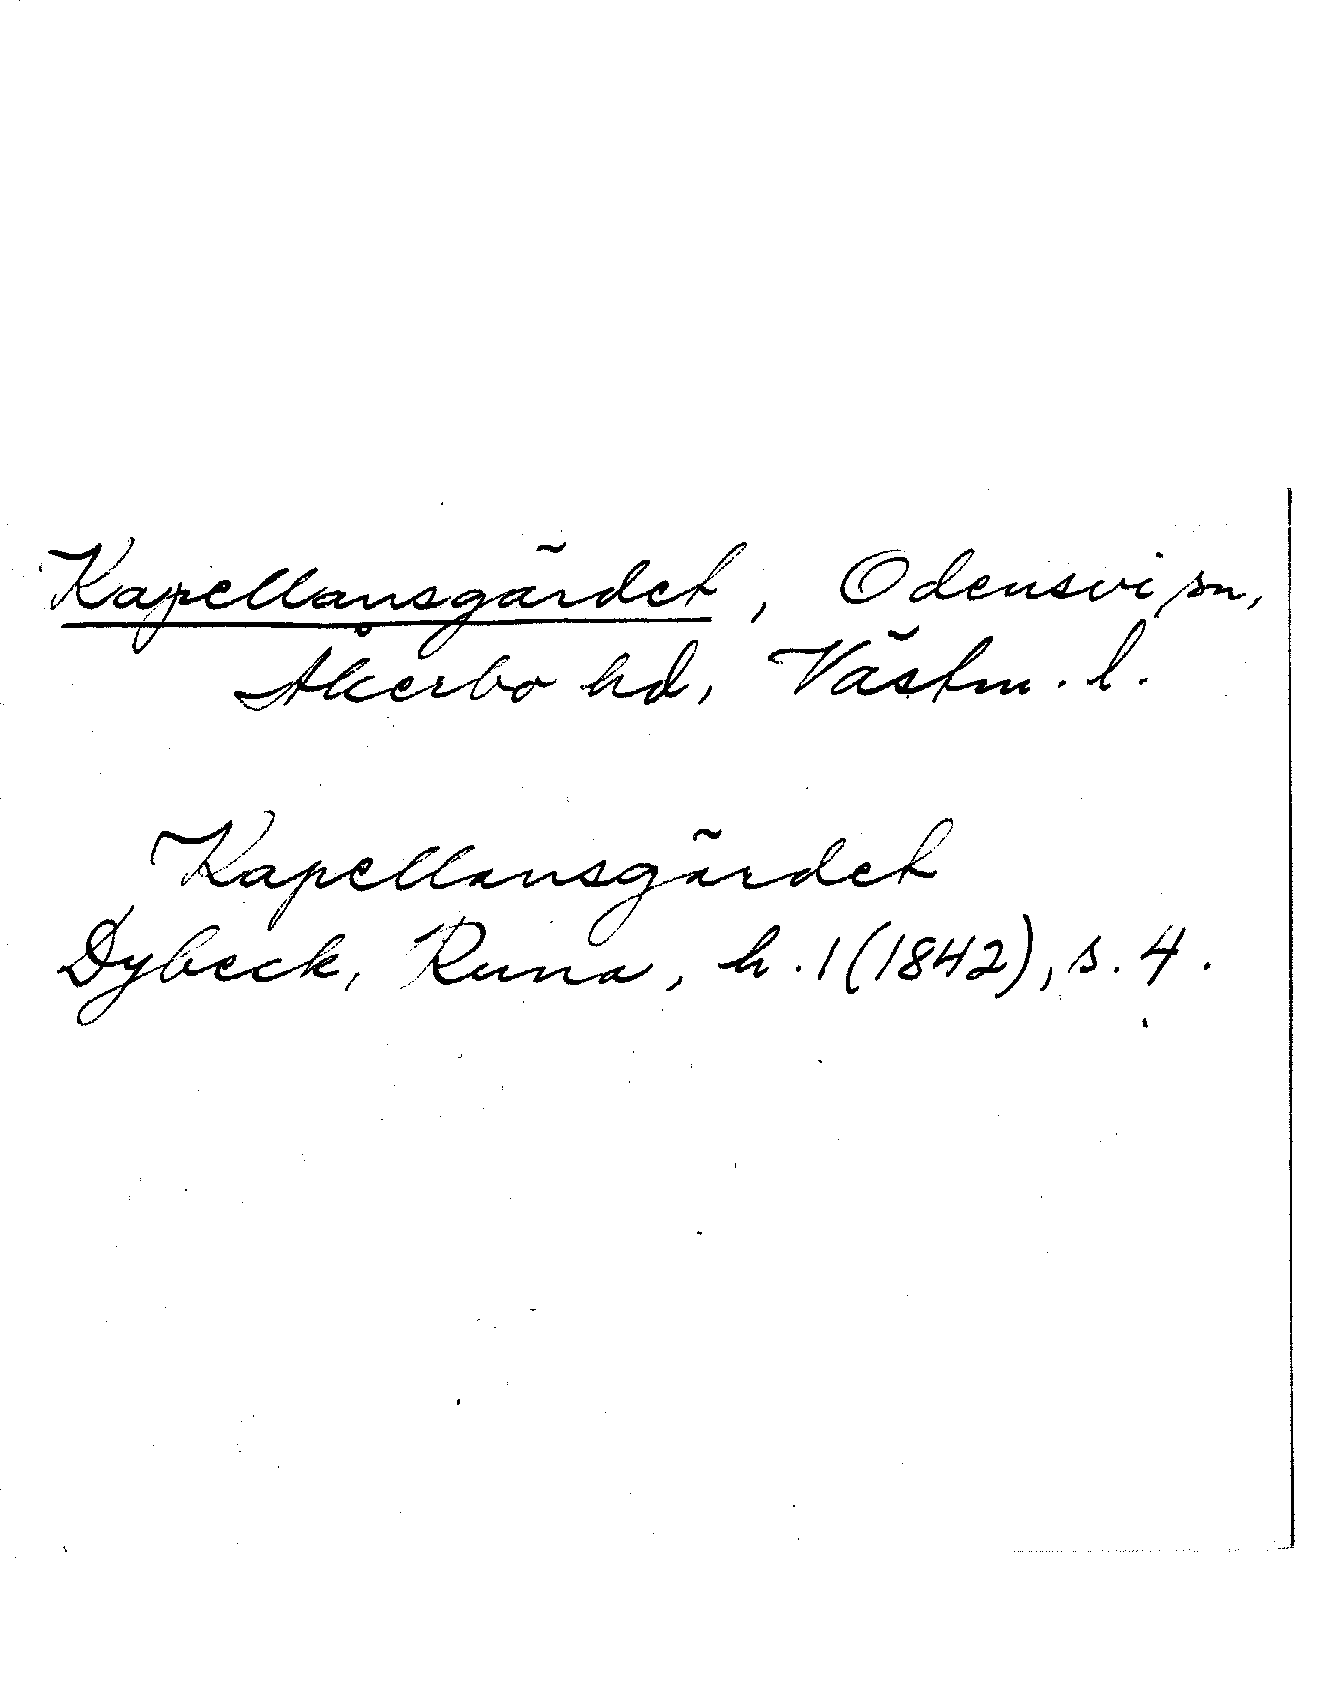 Kapellansgärdet, Odensvi sn,
Åkerbo hd, Västm. l.
Kapellansgärdet
Dybeck, Runa, h. 1 (1842), s. 4.